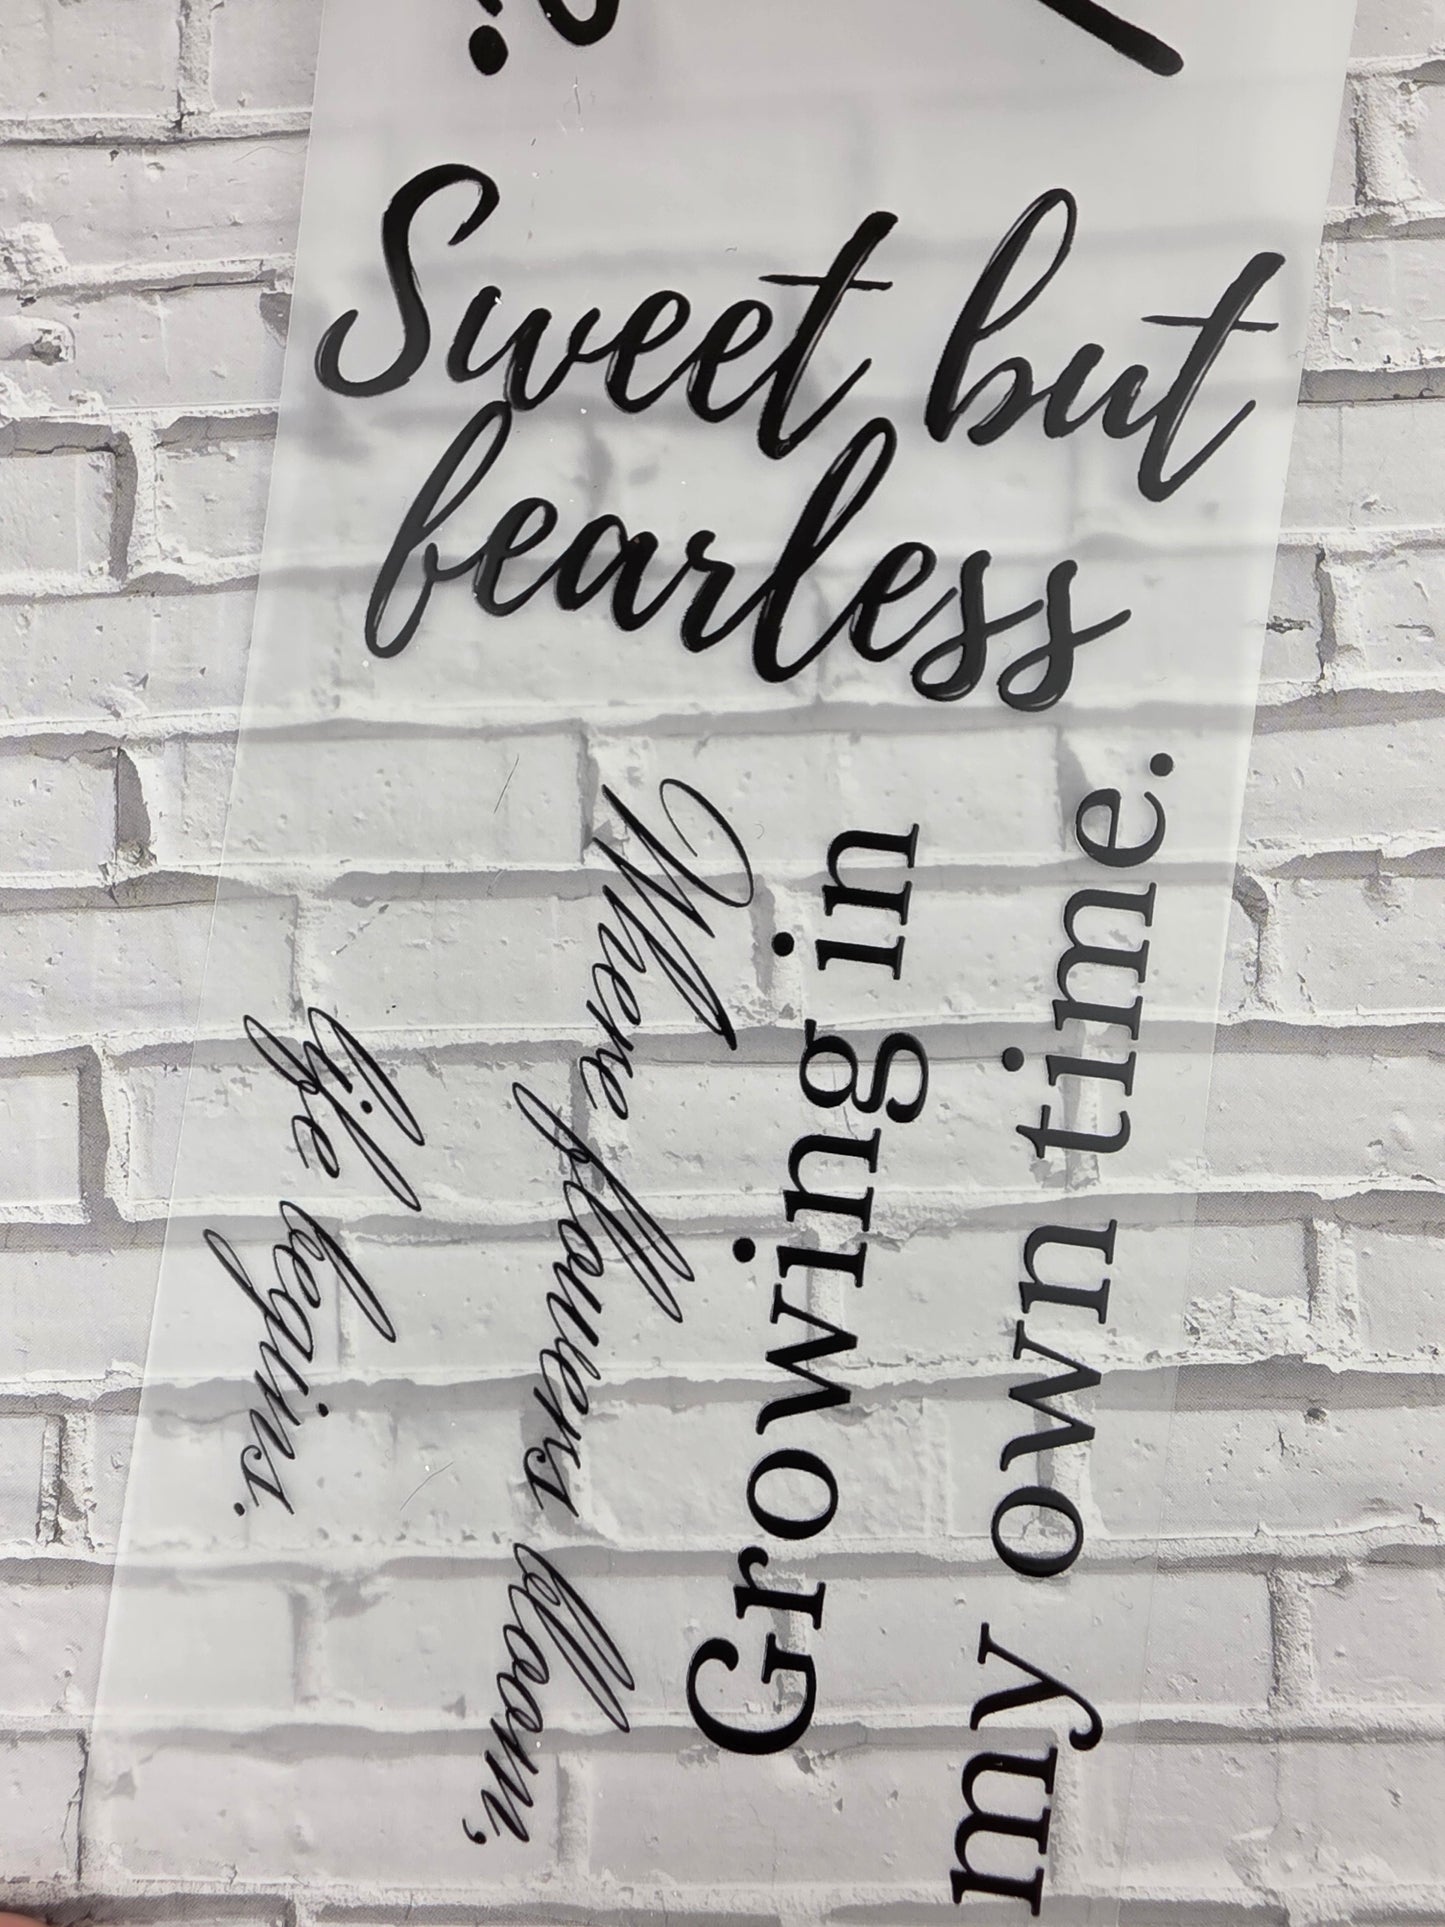 Sweet but
fearless
Where flowers bloom,
life begins.
Growing in
my own time.